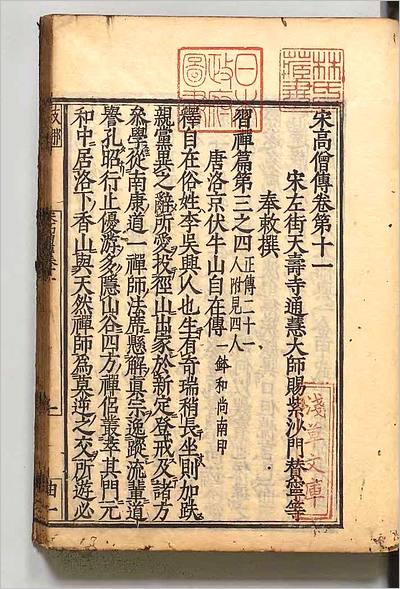 宋高僧傳卷第十一
宋左街天壽寺通慧大師賜紫沙門賛寧等
奉敕撰
習禪篇第三之四正傳二十一人附見四人
唐洛京伏牛山自在傳一鉢和尚南甲
釋自在俗姓李吳興人也生有奇瑞稍長坐則加趺
親黨異之辭所愛投徑山出家於新定登戒及諸方
叅學從南康道一禪師法席懸解眞宗逸踪流輩道
譽孔昭行止優游多隱山谷四方禪侣叢萃其門元
和中居洛下香山與天然禪師爲莫逆之交所遊必
林氏
藏書
日本
政府
圖書
淺草文庫